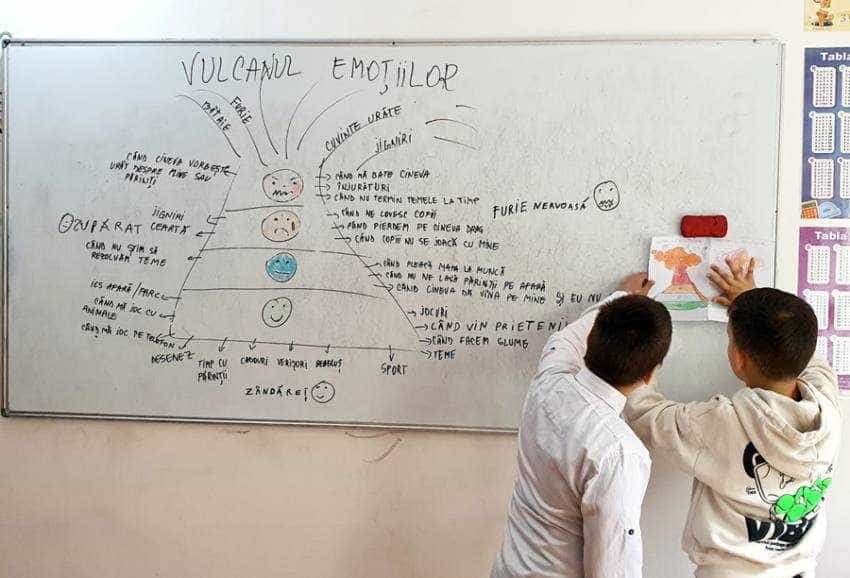 VULCANUL EMOȚIILOR
BĂTAIE
FURIE
CUVINTE URÂTE
JIGNIRI
CÂND CINEVA VORBEȘTE
URÂT DESPRE MINE SAU
PĂRINȚI
CÂND MĂ BATE CINEVA
ÎNJURĂTURI
CÂND NU TERMIN TEMELE LA TIMP
FURIE NERVOASĂ
JIGNIRI
SUPĂRAT CEARTĂ
CÂND NU ȘTIM SĂ
REZOLVĂM TEME
CÂND NE LOVESC COPII
CÂND PIERDEM PE CINEVA DRAG
CÂND COPII NU SE JOACĂ CU MINE
CÂND PLEACĂ MAMA LA MUNCĂ
CÂND NU NE LASĂ PĂRINȚII PE AFARĂ
CÂND CINEVA DĂ VINA PE MINE ȘI EU NU
IES AFARĂ / PARC
CÂND MĂ JOC CU
ANIMALE
CÂND MĂ JOC PE TELEFON
JOCURI
CÂND VIN PRIETENII
CÂND FACEM GLUME
TEME
DESENEZ
TIMP CU
PĂRINȚII
CADOURI
VERIȘORI
BEBELUȘ
SPORT
ZÂNDĂREȚ
Tabla
Tabla